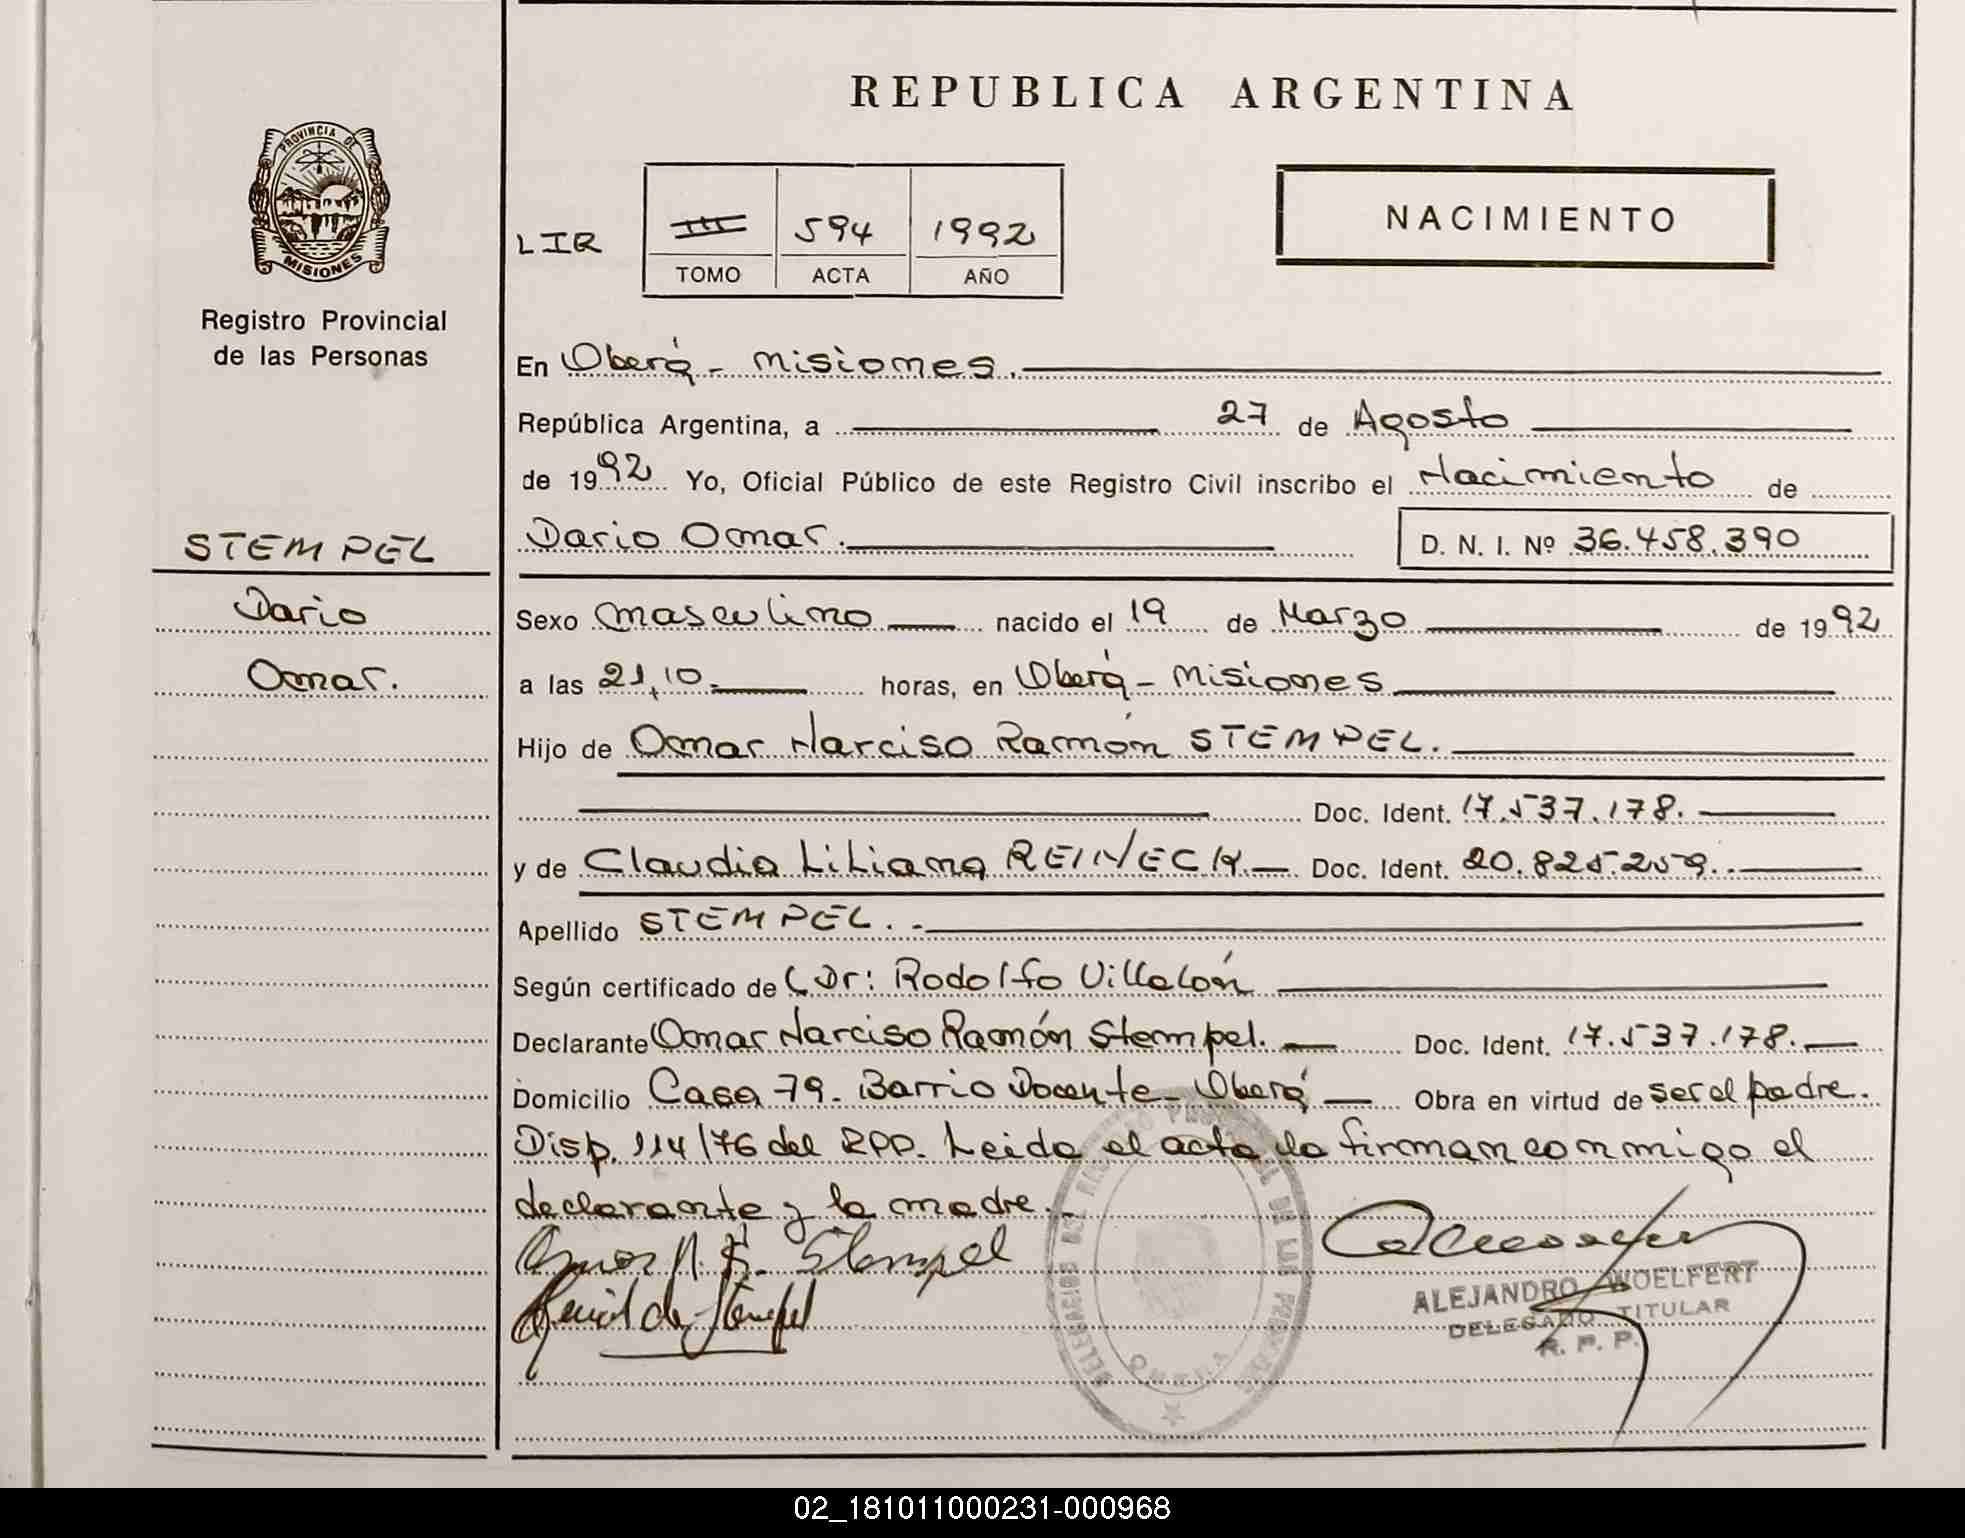 REPUBLICA ARGENTINA
PROVINCIA DE
MISIONES
Registro Provincial
de las Personas
LIR III 594 1992
TOMO ACTA AÑO
NACIMIENTO
En Oberá - Misiones.
República Argentina, a 27 de Agosto
de 1992 Yo, Oficial Público de este Registro Civil inscribo el Nacimiento de
STEMPEL
Dario Omar. D. N. I. Nº 36.458.390
Dario
Omar.
Sexo masculino nacido el 19 de Marzo de 1992
a las 21,10.- horas, en Oberá - Misiones
Hijo de Omar Narciso Ramón STEMPEL.
Doc. Ident. 17.537.178.
y de Claudia Liliana REINECK. Doc. Ident. 20.825.259.
Apellido STEMPEL. -
Según certificado de Dr: Rodolfo Villalón
Declarante Omar Narciso Ramón Stempel. Doc. Ident. 17.537.178.
Domicilio Casa 79. Barrio Docente - Oberá Obra en virtud de ser el padre.
Disp. 114/76 del RPP. Leida el acta la firman conmigo el
declarante y la madre.
Omar N. R. Stempel
de Stempel
ALEJANDRO WOELFERT
DELEGADO TITULAR
R. P. P.
02_181011000231-000968